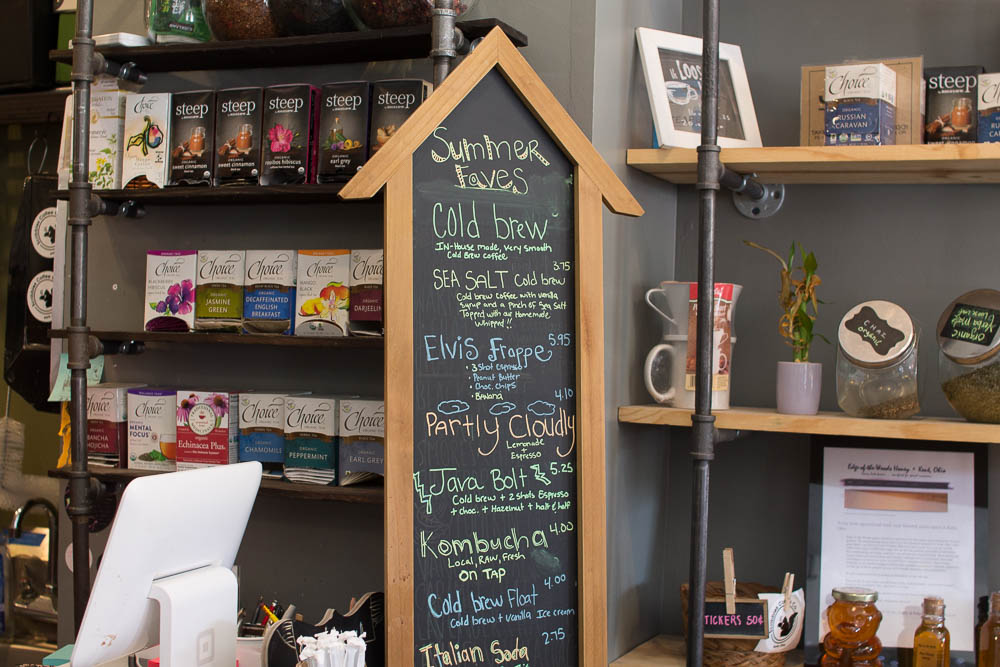 Summer
Faves
Cold brew
IN-House made, Very smooth
Cold Brew coffee
3.75
SEA SALT Cold brew
Cold brew coffee with vanilla
syrup and a pinch of Sea Salt
Topped with our Homemade
Whipped!!
5.95
Elvis Frappe
• 3 Shot Espresso
• Peanut Butter
• Choc. Chips
• Banana
4.10
Partly Cloudly
Lemonade
+
Espresso
Java Bolt 5.25
Cold brew + 2 Shots Espresso
+ choc. + Hazelnut + half & half
Kombucha 4.00
Local, RAW, Fresh
ON TAP
4.00
Cold brew Float
Cold brew + Vanilla Ice cream
2.75
Italian Soda
Choice
steep
sweet cinnamon
steep
sweet cinnamon
steep
rooibos hibiscus
steep
earl grey
steep
Choice
BLACKBERRY
HIBISCUS
Choice
JASMINE
GREEN
Choice
DECAFFEINATED
ENGLISH
BREAKFAST
Choice
MANGO
BLACK
Choice
DARJEELING
Choice
BANCHA
HOJICHA
Choice
MENTAL
FOCUS
Echinacea Plus
Choice
CHAMOMILE
Choice
PEPPERMINT
Choice
EARL GREY
LOOSE
Choice
RUSSIAN
CARAVAN
steep
Choice
CHAI
organic
organic
Edge of the Woods Honey • Kent, Ohio
STICKERS 50¢